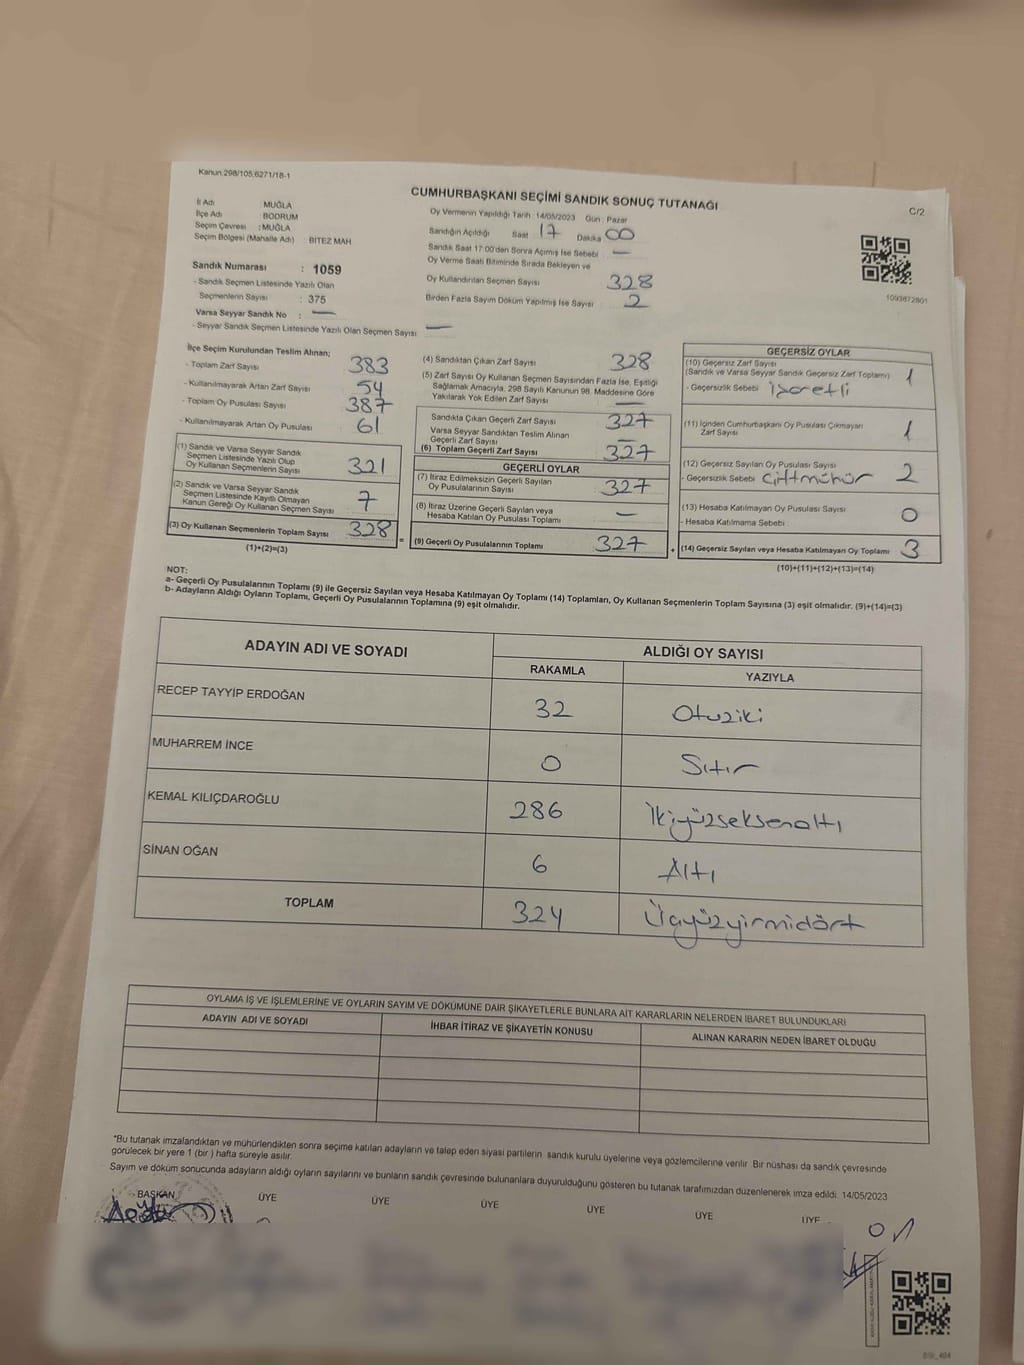 Kanun.298/105,6271/18-1
CUMHURBAŞKANI SEÇİMİ SANDIK SONUÇ TUTANAĞI
C/2
İl Adı : MUĞLA
İlçe Adı : BODRUM
Seçim Çevresi : MUĞLA
Seçim Bölgesi (Mahalle Adı) : BİTEZ MAH
Sandık Numarası : 1059
- Sandık Seçmen Listesinde Yazılı Olan
Seçmenlerin Sayısı : 375
Varsa Seyyar Sandık No : —
- Seyyar Sandık Seçmen Listesinde Yazılı Olan Seçmen Sayısı —
Oy Vermenin Yapıldığı Tarih : 14/05/2023 Gün : Pazar
Sandığın Açıldığı Saat 17 Dakika 00
Sandık Saat 17:00'den Sonra Açılmış İse Sebebi —
Oy Verme Saati Bitiminde Sırada Bekleyen ve
Oy Kullandırılan Seçmen Sayısı 328
Birden Fazla Sayım Döküm Yapılmış İse Sayısı 2
1093872801
İlçe Seçim Kurulundan Teslim Alınan;
- Toplam Zarf Sayısı 383
- Kullanılmayarak Artan Zarf Sayısı 54
- Toplam Oy Pusulası Sayısı 387
- Kullanılmayarak Artan Oy Pusulası 61
(1) Sandık ve Varsa Seyyar Sandık
Seçmen Listesinde Yazılı Olup
Oy Kullanan Seçmenlerin Sayısı 321
(2) Sandık ve Varsa Seyyar Sandık
Seçmen Listesinde Kayıtlı Olmayan
Kanun Gereği Oy Kullanan Seçmen Sayısı 7
(3) Oy Kullanan Seçmenlerin Toplam Sayısı 328
(1)+(2)=(3)
(4) Sandıktan Çıkan Zarf Sayısı 328
(5) Zarf Sayısı Oy Kullanan Seçmen Sayısından Fazla İse, Eşitliği
Sağlamak Amacıyla, 298 Sayılı Kanunun 98. Maddesine Göre
Yakılarak Yok Edilen Zarf Sayısı —
Sandıkta Çıkan Geçerli Zarf Sayısı 327
Varsa Seyyar Sandıktan Teslim Alınan
Geçerli Zarf Sayısı —
(6) Toplam Geçerli Zarf Sayısı 327
GEÇERLİ OYLAR
(7) İtiraz Edilmeksizin Geçerli Sayılan
Oy Pusulalarının Sayısı 327
(8) İtiraz Üzerine Geçerli Sayılan veya
Hesaba Katılan Oy Pusulası Toplamı —
(9) Geçerli Oy Pusulalarının Toplamı 327
GEÇERSİZ OYLAR
(10) Geçersiz Zarf Sayısı
(Sandık ve Varsa Seyyar Sandık Geçersiz Zarf Toplamı) 1
- Geçersizlik Sebebi İşaretli
(11) İçinden Cumhurbaşkanı Oy Pusulası Çıkmayan
Zarf Sayısı 1
(12) Geçersiz Sayılan Oy Pusulası Sayısı 2
- Geçersizlik Sebebi Çiftmühür
(13) Hesaba Katılmayan Oy Pusulası Sayısı 0
- Hesaba Katılmama Sebebi
+ (14) Geçersiz Sayılan veya Hesaba Katılmayan Oy Toplamı 3
(10)+(11)+(12)+(13)=(14)
NOT:
a- Geçerli Oy Pusulalarının Toplamı (9) ile Geçersiz Sayılan veya Hesaba Katılmayan Oy Toplamı (14) Toplamları, Oy Kullanan Seçmenlerin Toplam Sayısına (3) eşit olmalıdır. (9)+(14)=(3)
b- Adayların Aldığı Oyların Toplamı, Geçerli Oy Pusulalarının Toplamına (9) eşit olmalıdır.
ADAYIN ADI VE SOYADI ALDIĞI OY SAYISI
RAKAMLA YAZIYLA
RECEP TAYYİP ERDOĞAN 32 Otuziki
MUHARREM İNCE 0 Sıfır
KEMAL KILIÇDAROĞLU 286 İkiyüzseksenaltı
SİNAN OĞAN 6 Altı
TOPLAM 324 Üçyüzyirmidört
OYLAMA İŞ VE İŞLEMLERİNE VE OYLARIN SAYIM VE DÖKÜMÜNE DAİR ŞİKAYETLERLE BUNLARA AİT KARARLARIN NELERDEN İBARET BULUNDUKLARI
ADAYIN ADI VE SOYADI İHBAR İTİRAZ VE ŞİKAYETİN KONUSU ALINAN KARARIN NEDEN İBARET OLDUĞU
*Bu tutanak imzalandıktan ve mühürlendikten sonra seçime katılan adayların ve talep eden siyasi partilerin sandık kurulu üyelerine veya gözlemcilerine verilir. Bir nüshası da sandık çevresinde
görülecek bir yere 1 (bir) hafta süreyle asılır.
Sayım ve döküm sonucunda adayların aldığı oyların sayılarını ve bunların sandık çevresinde bulunanlara duyurulduğunu gösteren bu tutanak tarafımızdan düzenlenerek imza edildi. 14/05/2023
BAŞKAN ÜYE ÜYE ÜYE ÜYE ÜYE ÜYE